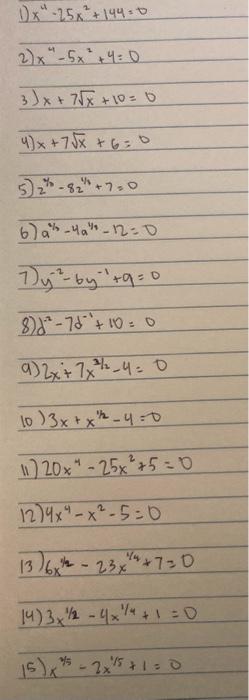 1) x⁴ - 25x² + 144 = 0
2) x⁴ - 5x² + 4 = 0
3) x + 7√x + 10 = 0
4) x + 7√x + 6 = 0
5) z^2/3 - 8z^1/3 + 7 = 0
6) a^2/3 - 4a^1/3 - 12 = 0
7) y⁻² - 6y⁻¹ + 9 = 0
8) d⁻² - 7d⁻¹ + 10 = 0
9) 2x + 7x^1/2 - 4 = 0
10) 3x + x^1/2 - 4 = 0
11) 20x⁴ - 25x² + 5 = 0
12) 4x⁴ - x² - 5 = 0
13) 6x^1/2 - 23x^1/4 + 7 = 0
14) 3x^1/2 - 4x^1/4 + 1 = 0
15) x^2/5 - 2x^1/5 + 1 = 0